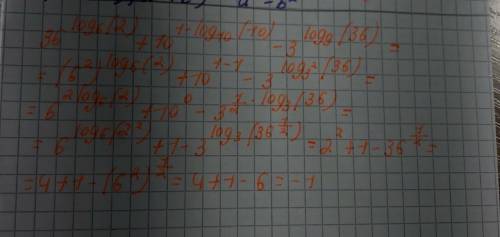 36^{log_6(2)} + 10^{1-log_{10}(10)} - 3^{log_9(36)} =
= (6^2)^{log_6(2)} + 10^{1-1} - 3^{log_{3^2}(36)} =
= 6^{2log_6(2)} + 10^0 - 3^{\frac{1}{2}·log_3(36)} =
= 6^{log_6(2^2)} + 1 - 3^{log_3(36^{\frac{1}{2}})} = 2^2 + 1 - 36^{\frac{1}{2}} =
= 4 + 1 - (6^2)^{\frac{1}{2}} = 4 + 1 - 6 = -1